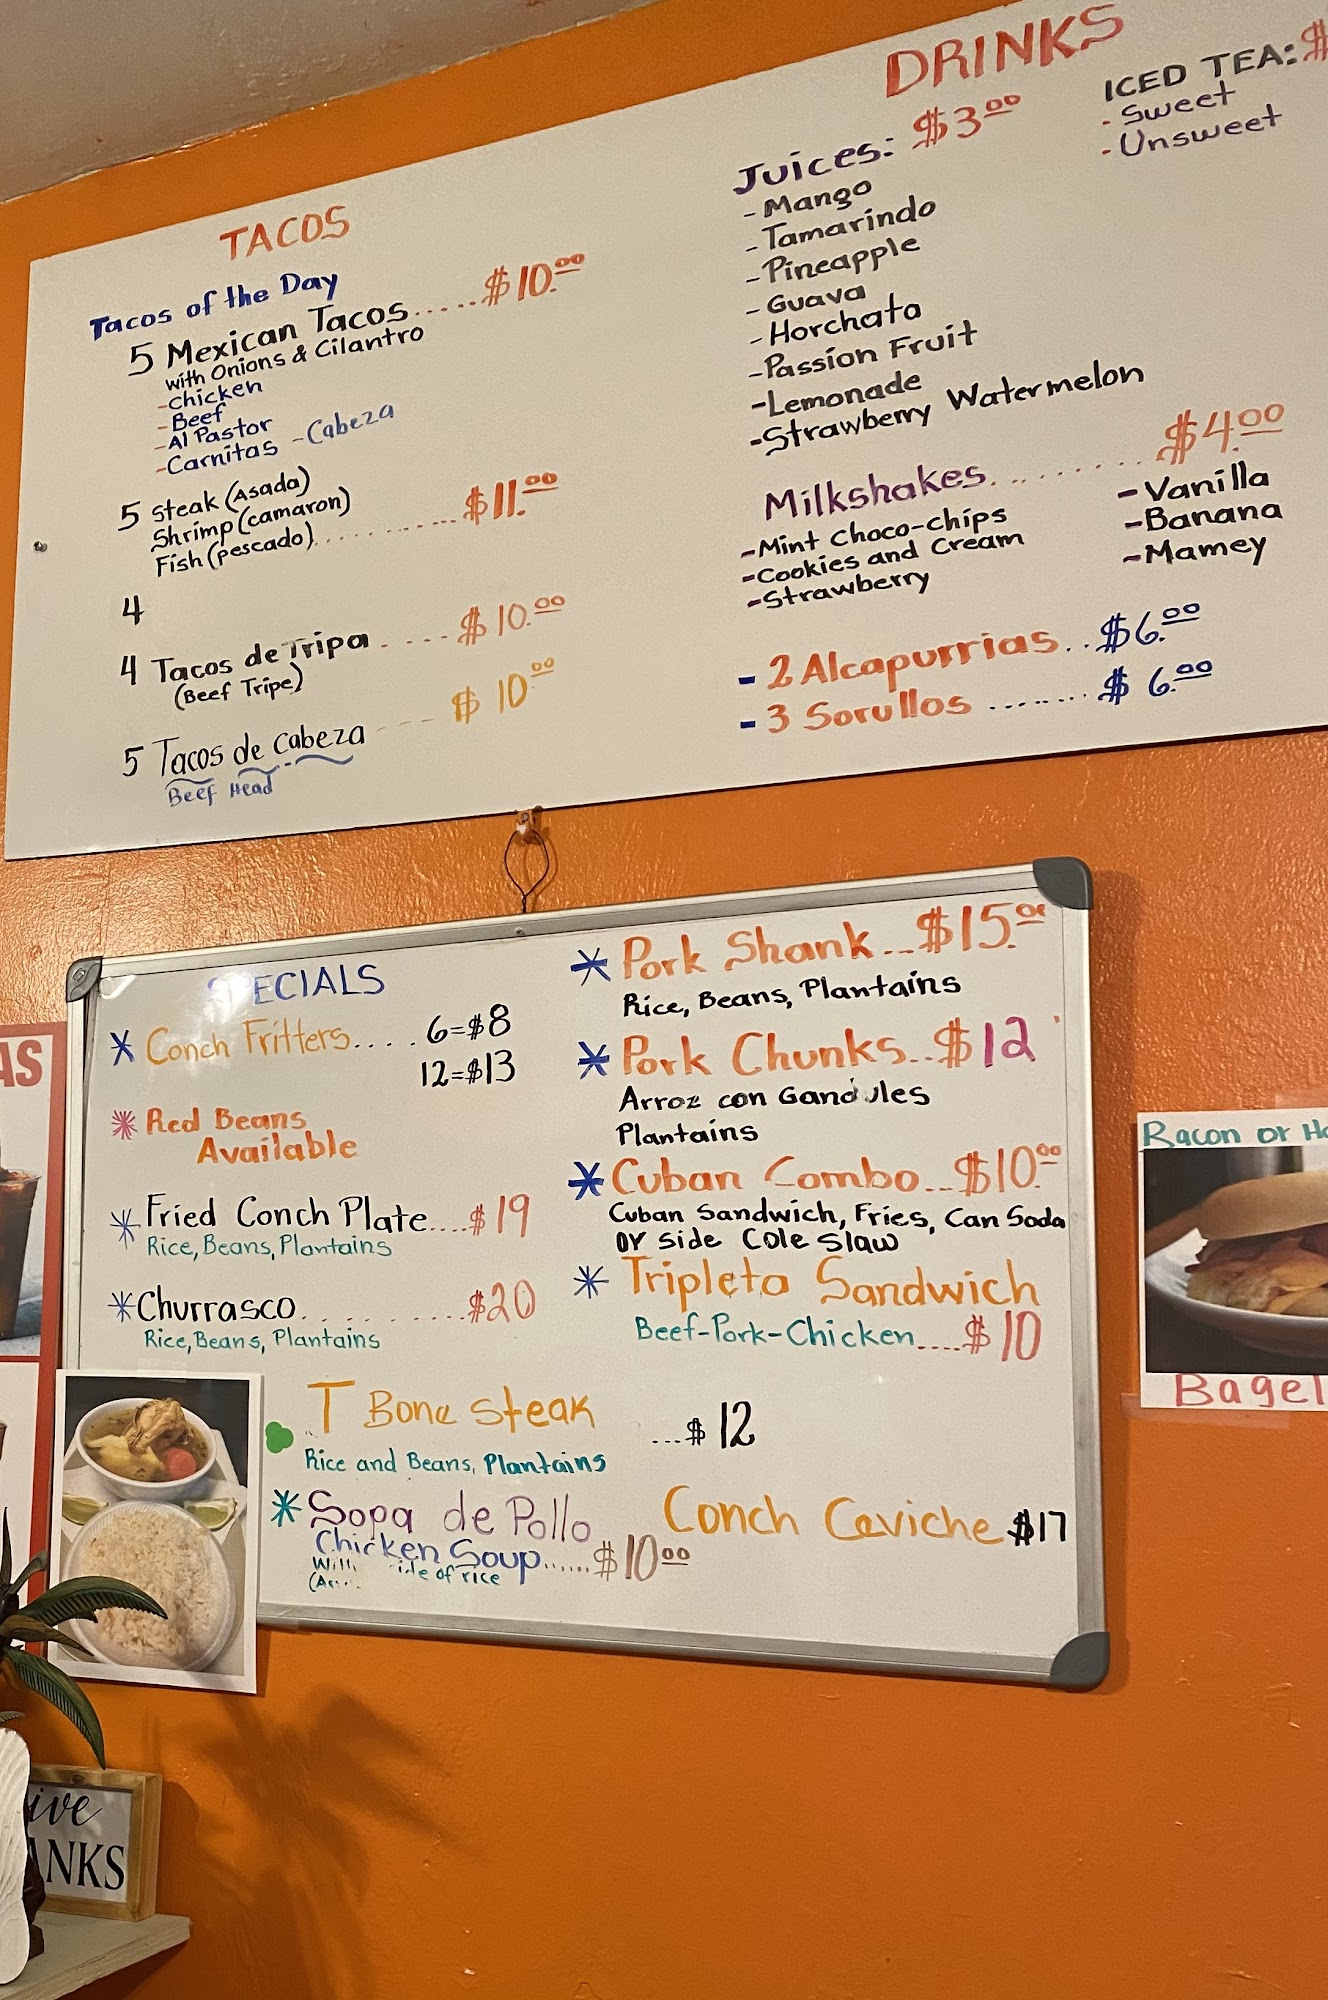 TACOS
Tacos of the Day
5 Mexican Tacos.......$10.00
with Onions & Cilantro
-Chicken
-Beef
-Al Pastor
-Carnitas -Cabeza
5 Steak (Asada)
Shrimp (camaron)
Fish (pescado)..............$11.00
4
4 Tacos de Tripa.....$10.00
(Beef Tripe)
5 Tacos de Cabeza---$10.00
Beef Head
DRINKS
Juices: $3.00
-Mango
-Tamarindo
-Pineapple
-Guava
-Horchata
-Passion Fruit
-Lemonade
-Strawberry Watermelon
ICED TEA: $
-Sweet
-Unsweet
Milkshakes..........$4.00
-Mint Choco-chips
-Cookies and Cream
-Strawberry
-Vanilla
-Banana
-Mamey
-2 Alcapurrias..$6.00
-3 Sorullos........$6.00
SPECIALS
* Conch Fritters.....6=$8
12=$13
* Red Beans
Available
* Fried Conch Plate....$19
Rice, Beans, Plantains
*Churrasco..........$20
Rice, Beans, Plantains
* Pork Shank...$15.00
Rice, Beans, Plantains
* Pork Chunks..$12
Arroz con Gandules
Plantains
* Cuban Combo...$10.00
Cuban Sandwich, Fries, Can Soda
or side Cole Slaw
* Tripleta Sandwich
Beef-Pork-Chicken....$10
T Bone steak ...$12
Rice and Beans, Plantains
* Sopa de Pollo
Chicken Soup......$10.00
of rice
Conch Ceviche $17
AS
Bacon or
Bagel
ive
ANKS